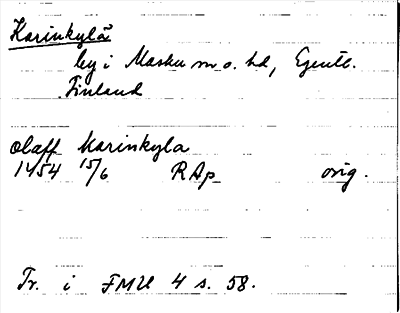 Karinkylä
by i Masku sn o. hd, Egentl.
Finland
Olaff Karinkyla
1454 15/6 RAp orig.
Tr. i FMU 4 s. 58.